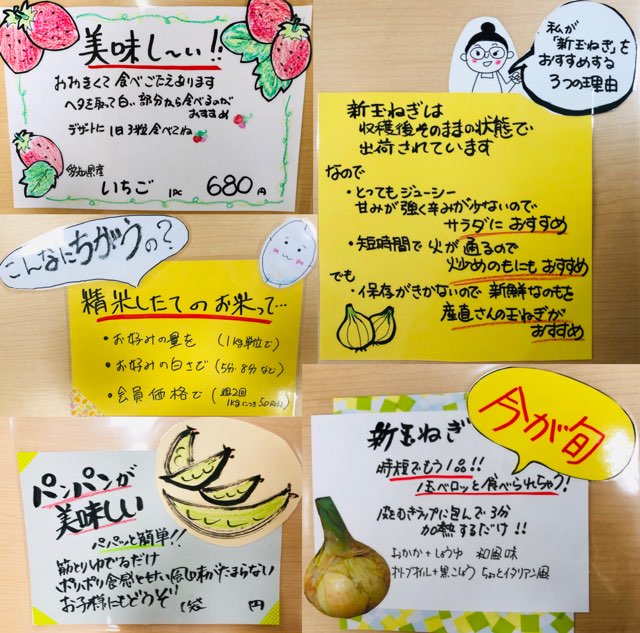 美味し〜い!!
おおきくて食べごたえあります
ヘタを取って白い部分から食べるのが
おすすめ
デザートに 1日3粒食べてね
愛知県産
いちご 1PC 680円
私が「新玉ねぎ」を
おすすめする
3つの理由
新玉ねぎは
収穫後そのままの状態で
出荷されています
なので
・とってもジューシー
甘みが強く辛みが少ないので
サラダにおすすめ
・短時間で火が通るので
炒めものにもおすすめ
でも
・保存がきかないので新鮮なものを
産直さんの玉ねぎが
おすすめ
こんなにちがうの?
精米したてのお米って…
・お好みの量を (1kg単位で)
・お好みの白さで (5分・8分など)
・会員価格で (週2回
パンパンが
美味しい
パパッと簡単!!
筋とりゆでるだけ
ポリポリ食感と甘い風味がたまらない
お子様にもどうぞ 1袋 円
今が旬
新玉ねぎ
時短でもう1品!!
1玉ペロッと食べられちゃう!
皮をむきラップに包んで3分
加熱するだけ!!
おかか+しょうゆ 和風味
オリーブオイル+黒こしょう ちょっとイタリアン風